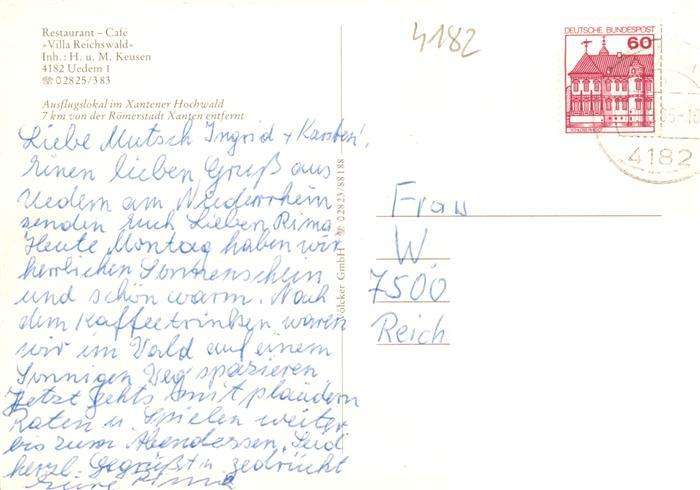 Restaurant – Cafe
»Villa Reichswald«
Inh.: H. u. M. Keusen
4182 Uedem 1
☎ 02825/383
Ausflugslokal im Xantener Hochwald
7 km von der Römerstadt Xanten entfernt
4182
DEUTSCHE BUNDESPOST
60
4182
Liebe Mutsch Ingrid + Karsten!
Einen lieben Gruß aus
Uedem am Niederrhein
senden Euch Lieben Rima
Heute Montag haben wir
herrlichen Sonnenschein
und schön warm. Nach
dem Kaffeetrinken waren
wir im Wald auf einem
Sonnigen Weg spazieren
Jetzt gehts mit plaudern
Raten u. Spielen weiter
bis zum Abendessen. Seid
herzl. Gegrüßt u. gedrückt
Eure
Völcker GmbH ☎ 02823/88188
Frau
W.
7500
Reich